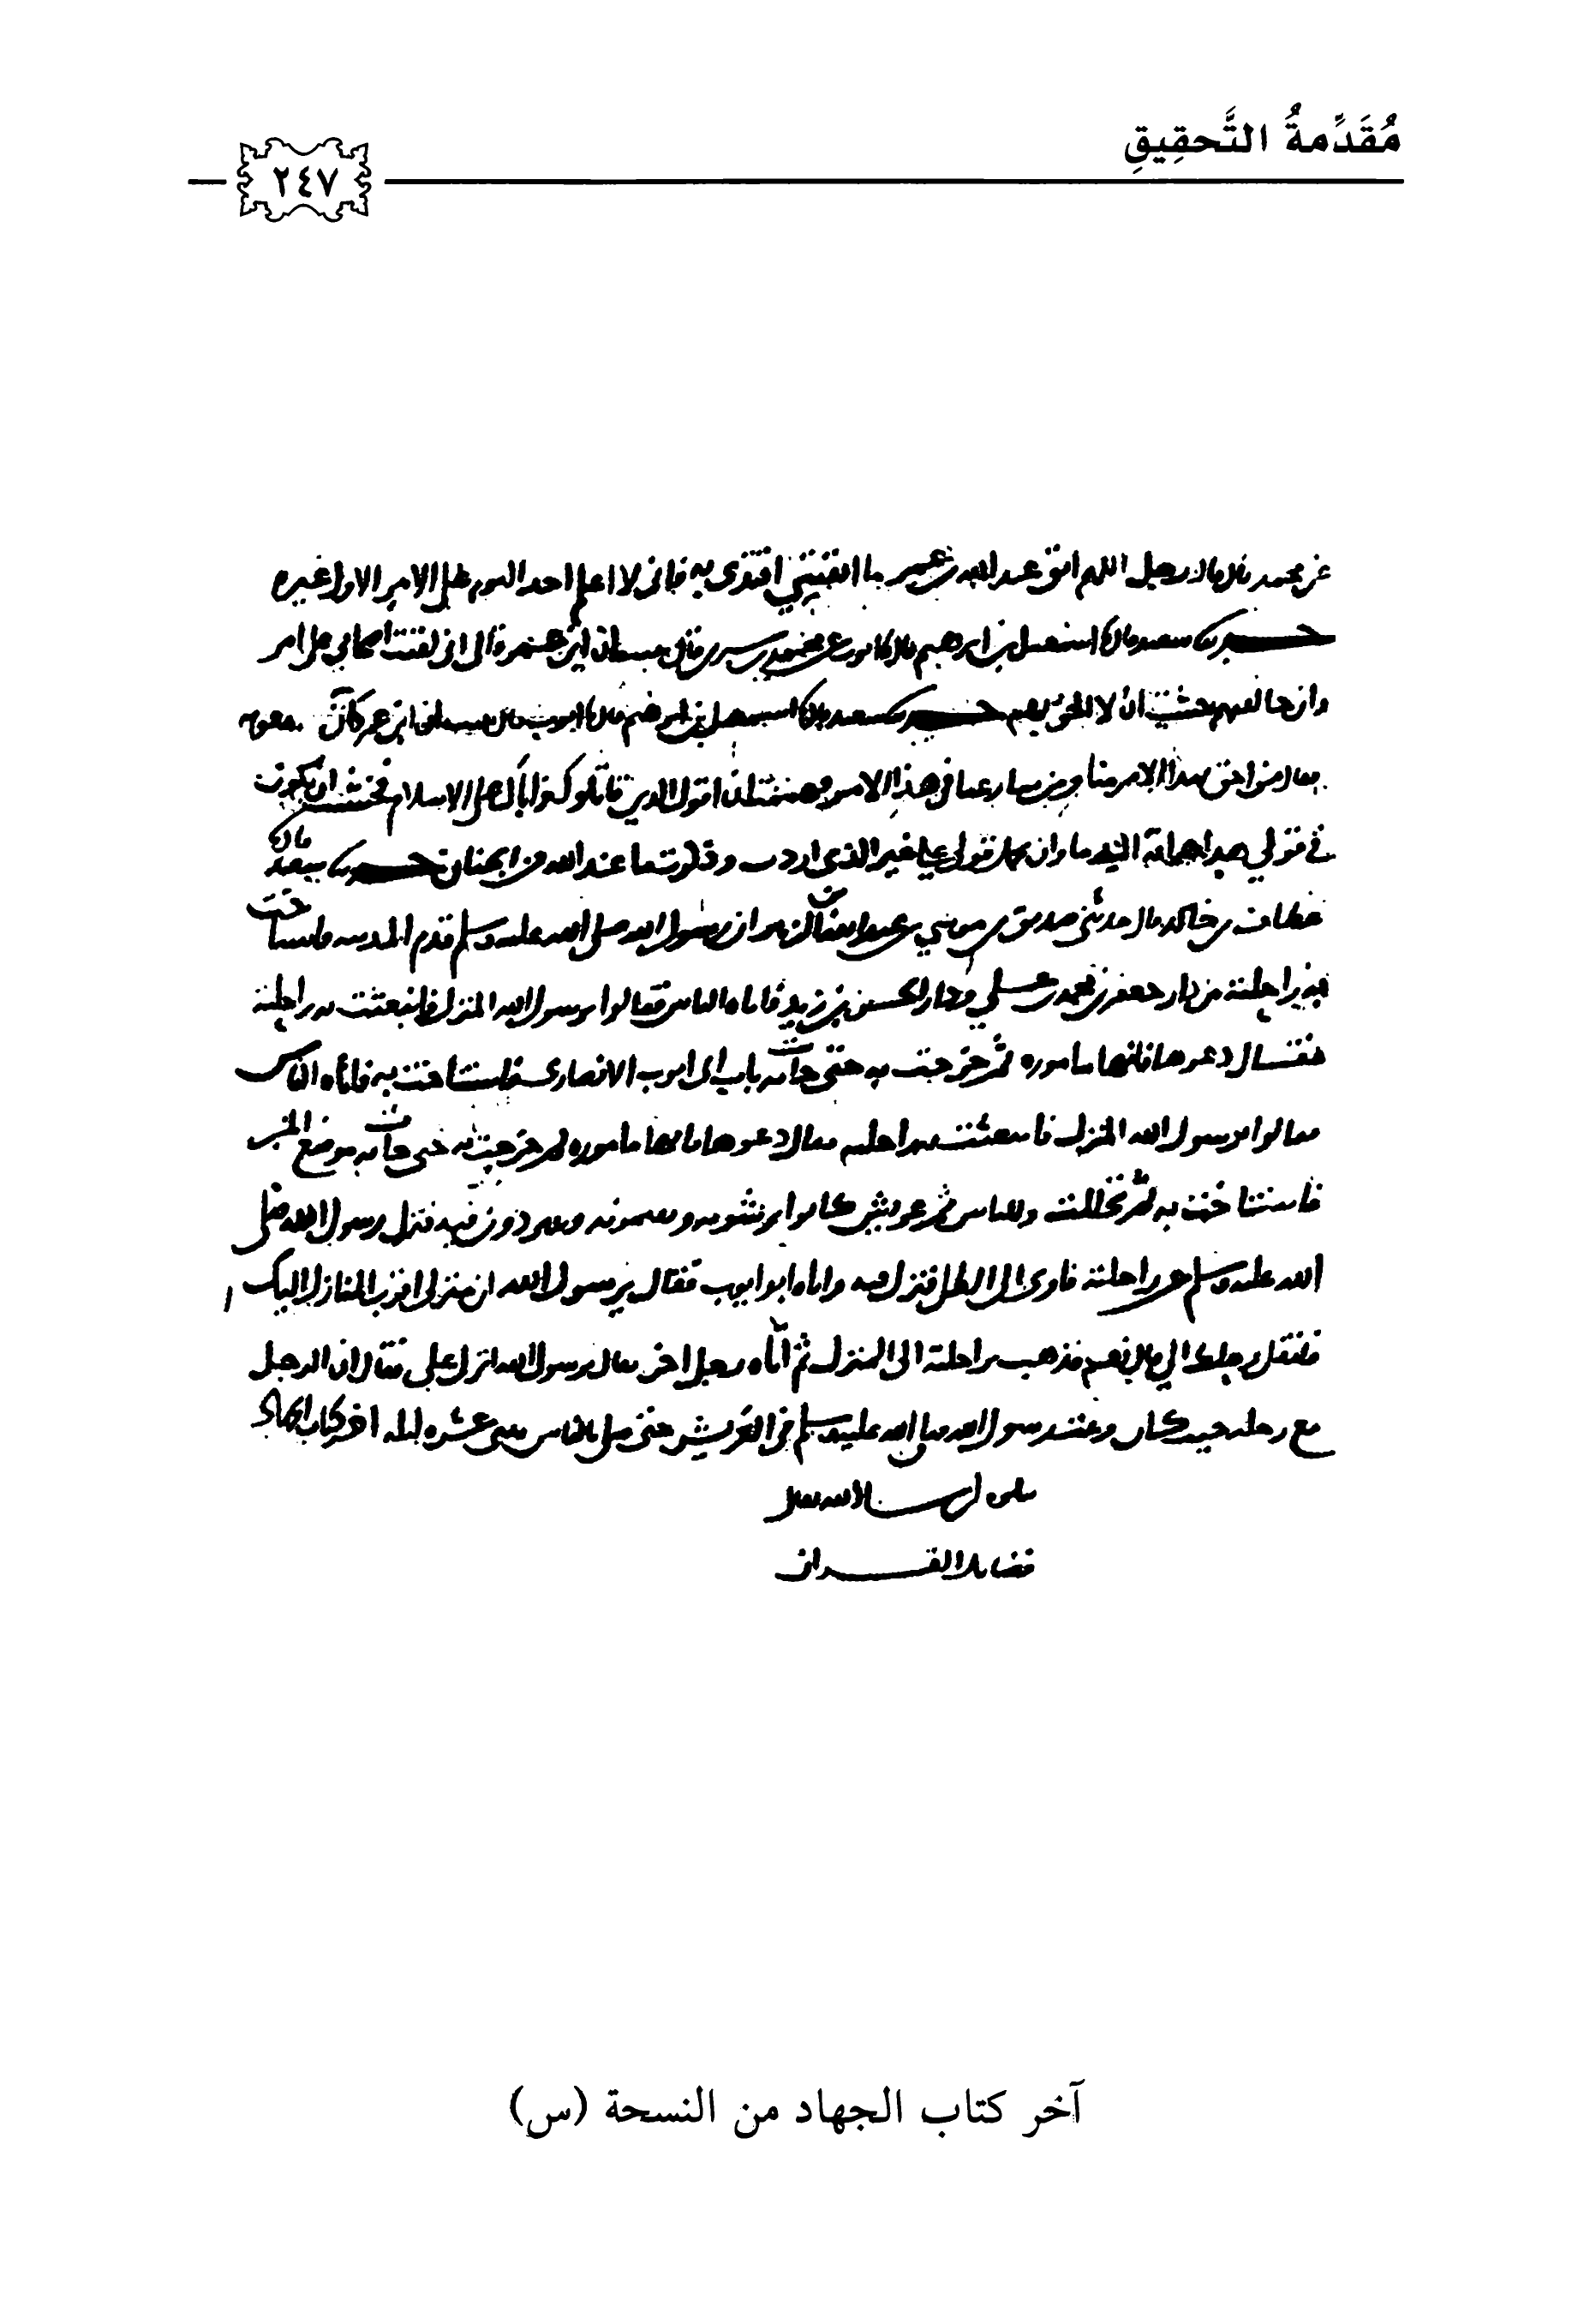 مُقَدِّمةُ التَّحقِيقِ
٢٤٧
عن محمد قال قال رجل اللهم ابق عبد الله بن عمر ما ابقيتني اقتدي به فاني لا اعلم احدا اليوم على الامر الاول غيره
سعيد قال اسمعيل بن ابرهيم قال ايوب عن محمد بن سيرين قال ان ابن عمر قال اني لقيت اصحابي على امر
وان خالفتهم خشيت ان لا الحق بهم سعيد قال اسمعيل بن ابرهيم قال ايوب قال ابن عمر معويه
من احق بهذا الامر منا ومن ينازعنا في هذا الامر فهممت ان اقول الذين قاتلوك واباك على الاسلام فخشيت ان يكون
في قولي الدما وان يحمل قولي على غير الذي اردت وذكرت ما عند الله من الجنان سعيد قال
عطاف بن خالد قال حدثني صديق بن موسى عن عبد الله بن الزبير ان رسول الله صلى الله عليه وسلم قدم المدينه فاستناخت
به راحلته من دار جعفر بن محمد بن علي ودار الحسن بن زيد فاتاه الناس فقالوا يرسول الله المنزل فانبعثت به راحلته
فقال دعوها فانها ماموره ثم خرجت به حتى جات به باب ابي ايوب الانصاري فاستناخت به فاتاه الناس
فقالوا يرسول الله المنزل فانبعثت به راحلته فقال دعوها فانها ماموره ثم خرجت به حتى جات به موضع المنبر
فاستناخت به ثم تحللت وللناس ثم عريش كانوا يرشونه ويعمرونه ويبردون فيه فنزل رسول الله صلى
الله عليه وسلم عن راحلته فاوى الى الظل فنزل فيه واتاه ابو ايوب فقال يرسول الله ان منزلي اقرب المنازل اليك
فانقل رحلك الي قال نعم فذهب براحلته الى المنزل ثم اتاه رجل اخر فقال يرسول الله انزل علي فقال ان الرجل
مع رحله حيث كان وعند رسول الله صلى الله عليه وسلم في العريش حتى صلى بالناس عشره ليله اخر كتاب الجهاد
يتلوه ان شا الله تعالى
فضايل القران
آخر كتاب الجهاد من النسخة (س)